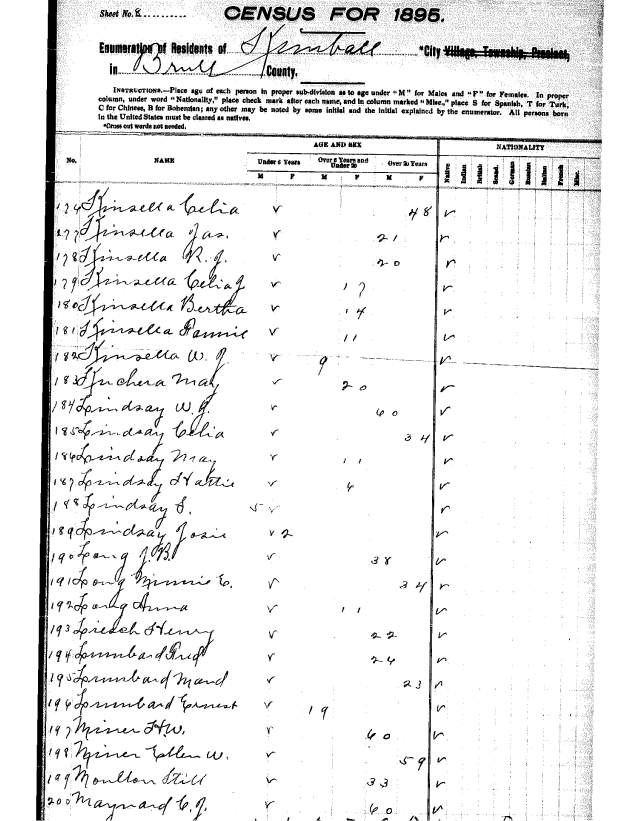 Sheet No. 8
CENSUS FOR 1895.
Enumeration of Residents of Kimball *City Village, Township, Precinct,
in Brule County.
INSTRUCTIONS.—Place age of each person in proper sub-division as to age under "M" for Males and "F" for Females. In proper
column, under word "Nationality," place check mark after each name, and in column marked "Misc.," place S for Spanish, T for Turk,
C for Chinese, B for Bohemian; any other may be noted by some initial and the initial explained by the enumerator. All persons born
in the United States must be classed as natives.
*Cross out words not needed.
AGE AND SEX NATIONALITY
No. NAME Under 6 Years Over 6 Years and Under 20 Over 20 Years Native Indian British Scand. German Russian French Misc.
M F M F M F
Kinsella Celia v 48 v
177 Kinsella Jas. v 21 v
178 Kinsella R. J. v 20 v
179 Kinsella Celia J v 17 v
180 Kinsella Bertha v 14 v
181 Kinsella Fannie v 11 v
182 Kinsella W. J. v 9 v
183 Kuchera May v 20 v
184 Lindsay W. J. v 60 v
185 Lindsay Celia v 34 v
186 Lindsay May v 11 v
187 Lindsay Hattie v 6 v
188 Lindsay S. 5 v v
189 Lindsay Josie v 2 v
190 Long J. B. v 38 v
191 Long Minnie E. v 34 v
192 Long Anna v 11 v
193 Liesch Henry v 22 v
194 Lumbard Fred v 26 v
195 Lumbard Maud v 23 v
196 Lumbard Ernest v 19 v
197 Miner H. W. v 60 v
198 Miner Ellen W. v 59 v
199 Moulton Still v 33 v
200 Maynard C. J. v 60 v